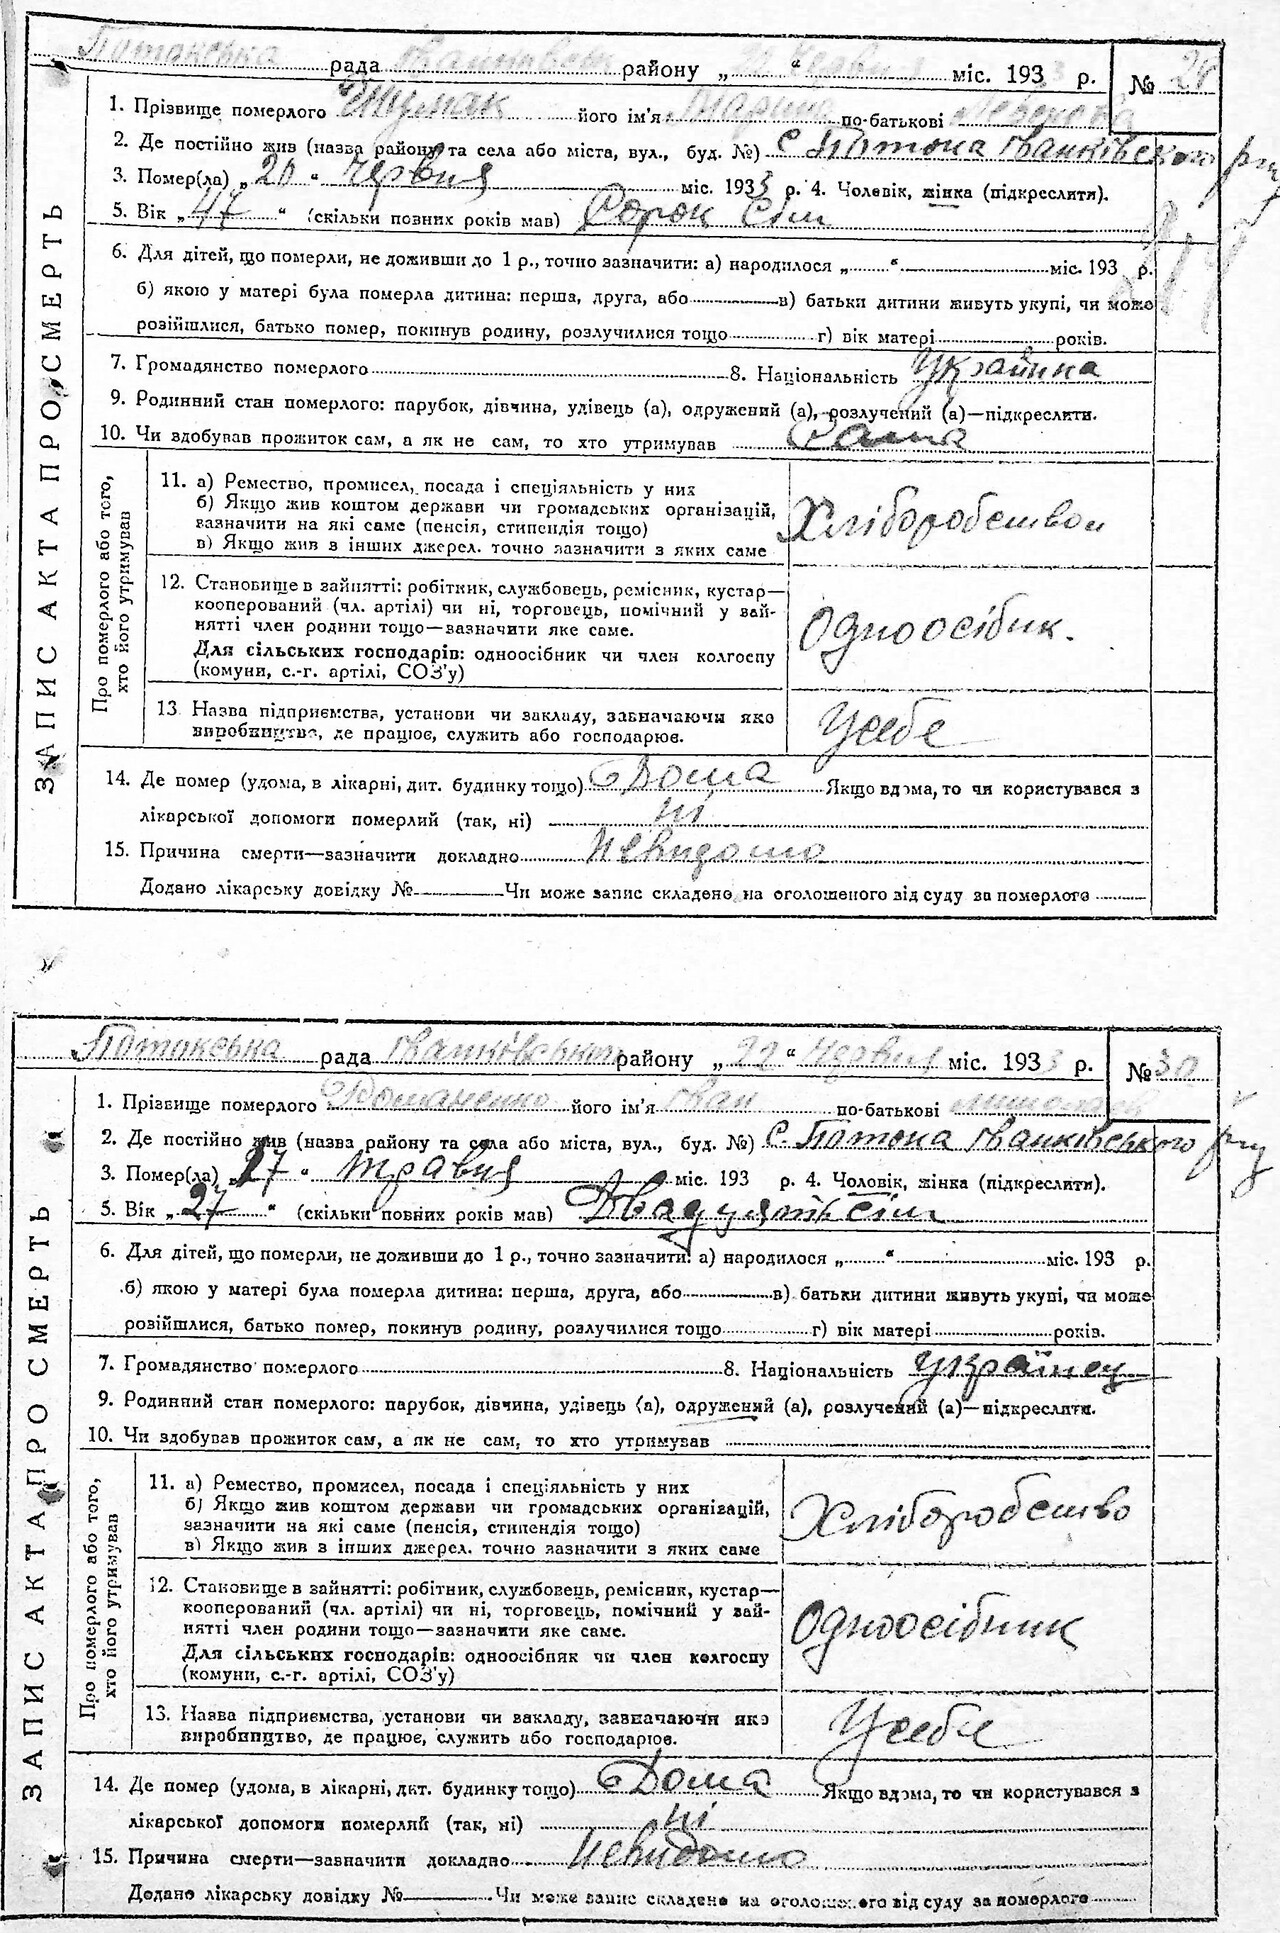 Потокська рада Іванківськ району „22“ червня міс. 1933 р. №
1. Прізвище померлого його ім'я Марина по-батькові
2. Де постійно жив (назва району та села або міста, вул., буд. №) с. Потока Іванківського р-ну
3. Помер(ла) „20“ червня міс. 1933 р. 4. Чоловік, жінка (підкреслити).
5. Вік „47“ (скільки повних років мав) Сорок сім
6. Для дітей, що померли, не доживши до 1 р., точно зазначити: а) народилося „ “ міс. 193 р.
б) якою у матері була померла дитина: перша, друга, або в) батьки дитини живуть укупі, чи може
розійшлися, батько помер, покинув родину, розлучилися тощо г) вік матері років.
7. Громадянство померлого 8. Національність Українка
9. Родинний стан померлого: парубок, дівчина, удівець (а), одружений (а), розлучений (а)—підкреслити.
10. Чи здобував прожиток сам, а як не сам, то хто утримував Сама
ЗАПИС АКТА ПРО СМЕРТЬ
Про померлого або того,
хто його утримував
11. а) Ремество, промисел, посада і спеціяльність у них
б) Якщо жив коштом держави чи громадських організацій,
зазначити на які саме (пенсія, стипендія тощо)
в) Якщо жив з інших джерел. точно зазначити з яких саме
Хліборобством
12. Становище в зайнятті: робітник, службовець, ремісник, кустар—
кооперований (чл. артілі) чи ні, торговець, помічний у зай-
нятті член родини тощо—зазначити яке саме.
Для сільських господарів: одноосібник чи член колгоспу
(комуни, с.-г. артілі, СОЗ'у)
Одноосібник.
13. Назва підприємства, установи чи закладу, зазначаючи яке
виробництво, де працює, служить або господарює.
У себе
14. Де помер (удома, в лікарні, дит. будинку тощо) Дома Якщо вдома, то чи користувався з
лікарської допомоги померлий (так, ні) ні
15. Причина смерти—зазначити докладно Невидомо
Додано лікарську довідку № Чи може запис складено на оголошеного від суду за померлого
Потокська рада Іванківського району „22“ червня міс. 1933 р. № 30
1. Прізвище померлого Романенко його ім'я Іван по-батькові
2. Де постійно жив (назва району та села або міста, вул., буд. №) с. Потока Іванківського р-ну
3. Помер(ла) „27“ травня міс. 193 р. 4. Чоловік, жінка (підкреслити).
5. Вік „27“ (скільки повних років мав) Двадцять сім
6. Для дітей, що померли, не доживши до 1 р., точно зазначити: а) народилося „ “ міс. 193 р.
б) якою у матері була померла дитина: перша, друга, або в) батьки дитини живуть укупі, чи може
розійшлися, батько помер, покинув родину, розлучилися тощо г) вік матері років.
7. Громадянство померлого 8. Національність Українец
9. Родинний стан померлого: парубок, дівчина, удівець (а), одружений (а), розлучений (а)—підкреслити.
10. Чи здобував прожиток сам, а як не сам, то хто утримував
ЗАПИС АКТА ПРО СМЕРТЬ
Про померлого або того,
хто його утримував
11. а) Ремество, промисел, посада і спеціяльність у них
б) Якщо жив коштом держави чи громадських організацій,
зазначити на які саме (пенсія, стипендія тощо)
в) Якщо жив з інших джерел. точно зазначити з яких саме
Хліборобство
12. Становище в зайнятті: робітник, службовець, ремісник, кустар—
кооперований (чл. артілі) чи ні, торговець, помічний у зай-
нятті член родини тощо—зазначити яке саме.
Для сільських господарів: одноосібник чи член колгоспу
(комуни, с.-г. артілі, СОЗ'у)
Одноосібник
13. Назва підприємства, установи чи закладу, зазначаючи яке
виробництво, де працює, служить або господарює.
У себе
14. Де помер (удома, в лікарні, дит. будинку тощо) Дома Якщо вдома, то чи користувався з
лікарської допомоги померлий (так, ні) ні
15. Причина смерти—зазначити докладно Невидомо
Додано лікарську довідку № Чи може запис складено на оголошеного від суду за померлого